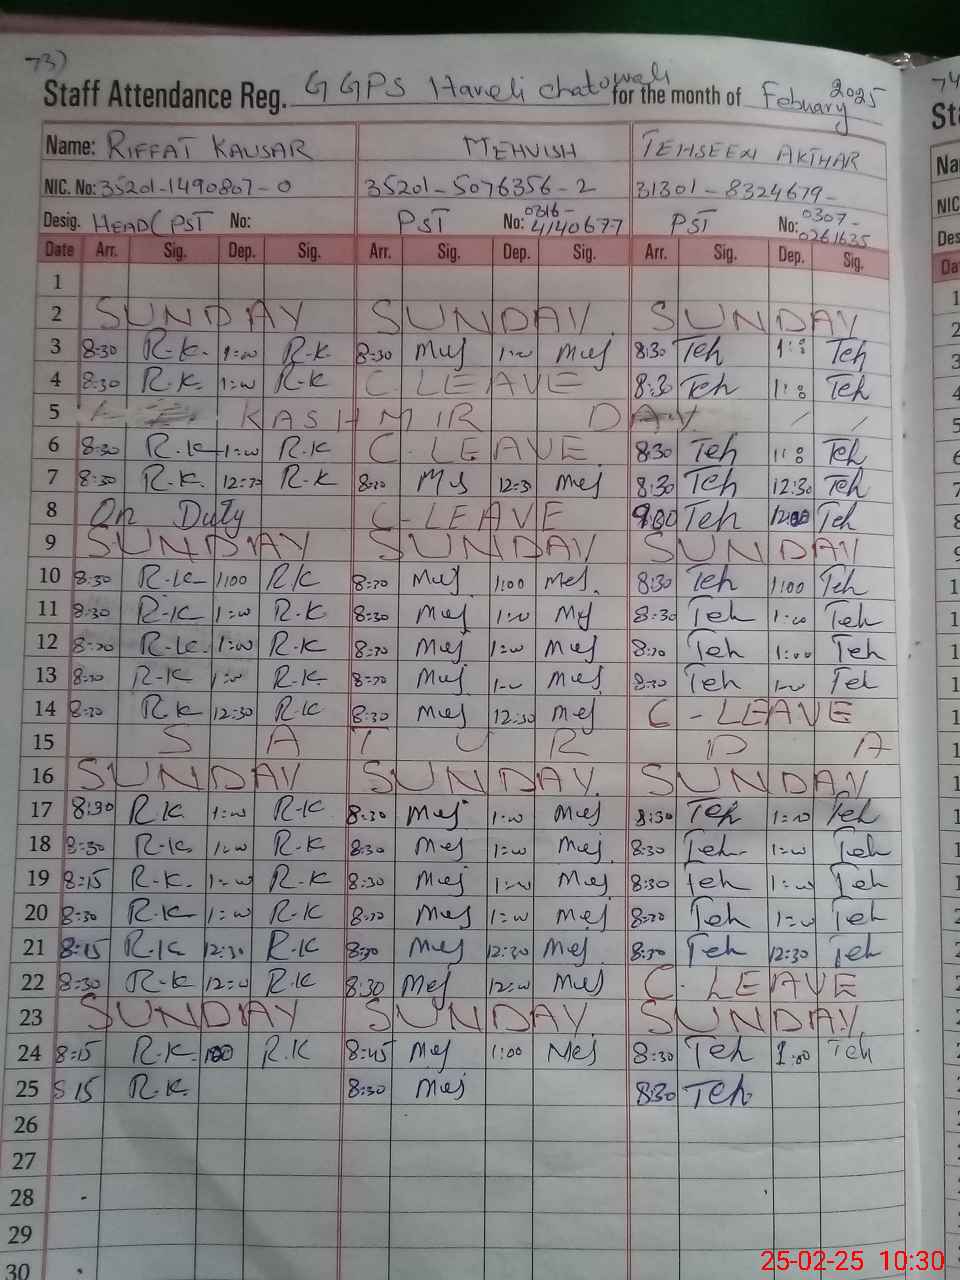 73)
Staff Attendance Reg. GGPS Haveli chatowali for the month of Febuary 2025
Name: RIFFAT KAUSAR MEHVISH TEHSEEN AKTHAR
NIC. No: 35201-1490807-0 35201-5076356-2 31301-8324679-
Desig. HEAD(PST No: PST No: 0316-4140677 PST No: 0307-0261635
Date Arr. Sig. Dep. Sig. Arr. Sig. Dep. Sig. Arr. Sig. Dep. Sig.
1
2 SUNDAY SUNDAY SUNDAY
3 8:30 R.K. 1:00 R.K 8:30 Mej 1:00 Mej 8:30 Teh 1:8 Teh
4 8:30 R.K. 1:00 R.K C.LEAVE 8:30 Teh 1:8 Teh
5 KASHMIR DAY
6 8:30 R.K 1:00 R.K C-LEAVE 8:30 Teh 1:8 Teh
7 8:30 R.K. 12:30 R.K 8:30 Mej 12:30 Mej 8:30 Teh 12:30 Teh
8 On Duty C-LEAVE 9:00 Teh 12:00 Teh
9 SUNDAY SUNDAY SUNDAY
10 8:30 R-K 1:00 RK 8:30 Mej 1:00 Mej. 8:30 Teh 1:00 Teh
11 8:30 R-K 1:00 R.K 8:30 Mej 1:00 Mej 8:30 Teh 1:00 Teh
12 8:30 R-K. 1:00 R.K 8:30 Mej 1:00 Mej 8:30 Teh 1:00 Teh
13 8:30 R-K 1:00 R.K. 8:30 Mej 1:00 Mej 8:30 Teh 1:00 Teh
14 8:30 RK 12:30 R.K 8:30 Mej 12:30 Mej C-LEAVE
15 SATURDA
16 SUNDAY SUNDAY SUNDAY
17 8:30 R.K. 1:00 R.K 8:30 Mej 1:00 Mej 8:30 Teh 1:00 Teh
18 8:30 R.K. 1:00 R.K 8:30 Mej 1:00 Mej 8:30 Teh 1:00 Teh
19 8:15 R.K. 1:00 R.K 8:30 Mej 1:00 Mej 8:30 Teh 1:00 Teh
20 8:30 R.K 1:00 R.K 8:30 Mej 1:00 Mej 8:30 Teh 1:00 Teh
21 8:15 R.K 12:30 R.K 8:30 Mej 12:30 Mej 8:30 Teh 12:30 Teh
22 8:30 R.K 12:00 R.K 8:30 Mej 12:00 Mej C-LEAVE
23 SUNDAY SUNDAY SUNDAY
24 8:15 R.K. 1:00 R.K 8:45 Mej 1:00 Mej 8:30 Teh 1:00 Teh
25 8 15 R.K. 8:30 Mej 8:30 Teh
26
27
28
29
30
25-02-25 10:30